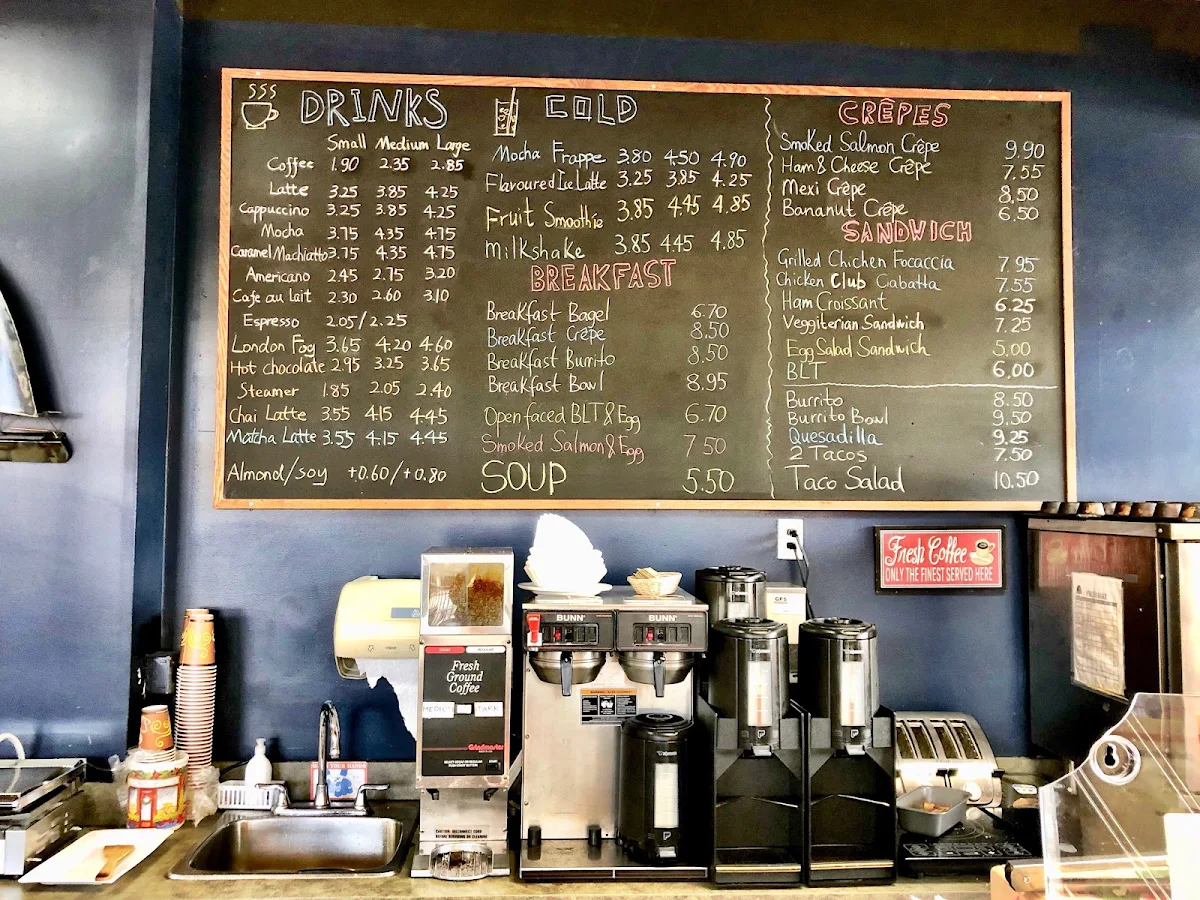 DRINKS
Small Medium Large
Coffee 1.90 2.35 2.85
Latte 3.25 3.85 4.25
Cappuccino 3.25 3.85 4.25
Mocha 3.75 4.35 4.75
Caramel Machiatto 3.75 4.35 4.75
Americano 2.45 2.75 3.20
Cafe au lait 2.30 2.60 3.10
Espresso 2.05/2.25
London Fog 3.65 4.20 4.60
Hot chocolate 2.95 3.25 3.65
Steamer 1.85 2.05 2.40
Chai Latte 3.55 4.15 4.45
Matcha Latte 3.55 4.15 4.45
Almond/soy +0.60/+0.80
COLD
Mocha Frappe 3.80 4.50 4.90
Flavoured Ice Latte 3.25 3.85 4.25
Fruit Smoothie 3.85 4.45 4.85
Milkshake 3.85 4.45 4.85
BREAKFAST
Breakfast Bagel 6.70
Breakfast Crêpe 8.50
Breakfast Burrito 8.50
Breakfast Bowl 8.95
Open faced BLT & Egg 6.70
Smoked Salmon & Egg 7.50
SOUP 5.50
CRÊPES
Smoked Salmon Crêpe 9.90
Ham & Cheese Crêpe 7.55
Mexi Crêpe 8.50
Bananut Crêpe 6.50
SANDWICH
Grilled Chichen Focaccia 7.95
Chicken Club Ciabatta 7.55
Ham Croissant 6.25
Veggiterian Sandwich 7.25
Egg Salad Sandwich 5.00
BLT 6.00
Burrito 8.50
Burrito Bowl 9.50
Quesadilla 9.25
2 Tacos 7.50
Taco Salad 10.50
Fresh Coffee
ONLY THE FINEST SERVED HERE
BUNN
BUNN
Fresh
Ground
Coffee
DARK
Grindmaster